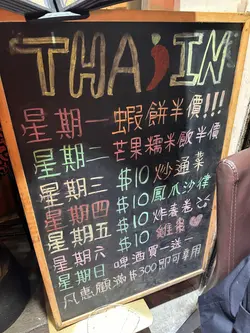 THAI IN
星期一 蝦餅半價!!!
星期二 芒果糯米飯半價
星期三 $10 炒通菜
星期四 $10 鳳爪沙律
星期五 $10 炸春卷
星期六 $10 雞翼
星期日 啤酒買一送一
凡惠顧滿$300即可享用